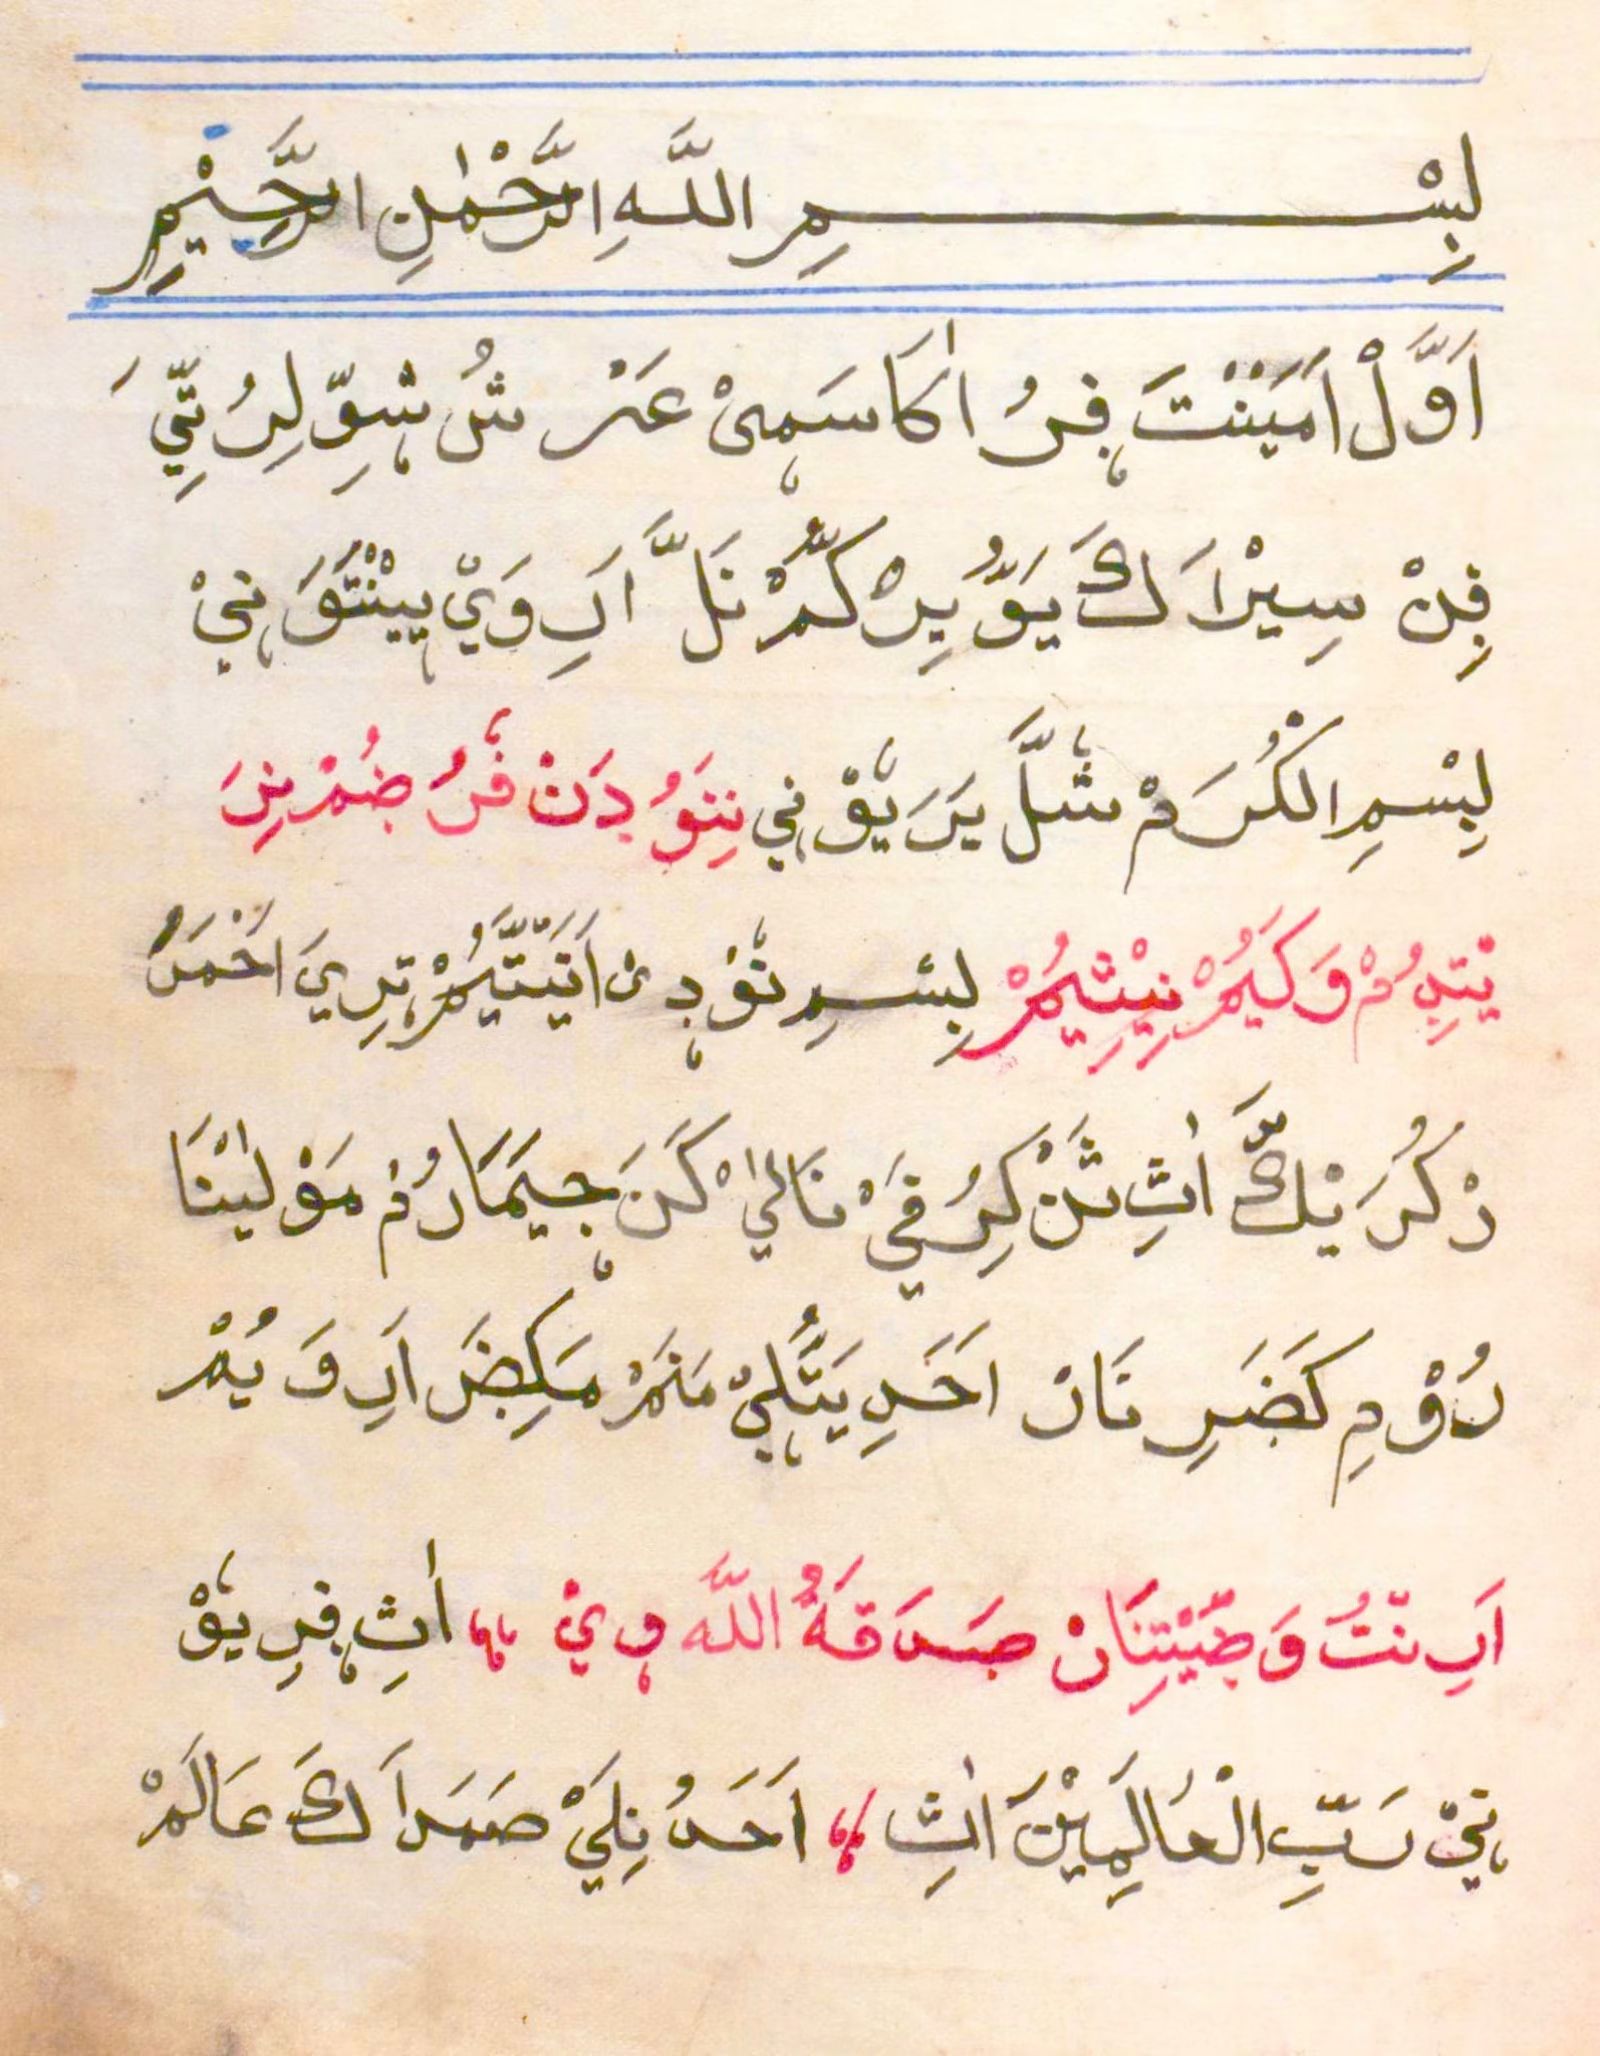 بِسْمِ اللَّهِ الرَّحْمٰنِ الرَّحِيْمِ
اَوَّلْ اَمَيَنْتَ فِرُ اٰكَاسَمِىْ عَرْ شُ شِوِّ لِرُ تِّيَ
فِنْ سِيْرَاكَ يَوُّ يِرْ كُمْ نَلَّ اَرِ وَيْ پِيْنْتُوَ نِيْ
بِسْمِ الْكُرَمْ شَلَّ يَرَ يٝوْ نِي نِنَوُ دَنْ فٝرُ ضُمْ نِرَ
يْتِدُمْ وَكَيُمْ نِيْتِيُمْ بِسْمِ نٝوْ دِىْ اَنَيَتَّيُمْ تِرِيَ اَحْمَدُ
رْ كُرَ يْكَّ اٰثِ ثَنْ كِرُ فَيْ نَالَيْ كَرَ جِيَمَارُمْ مَوْلٰينَا
رُوْ مِ كَضَرِ نَانْ اَحَدِ يَتُّلِيْ مَنَمْ مَكِضَ اَرِ وَ يُمْ
اَرِ نّتُ وَ ضَيْتِنَانْ صَدَقَةُ اللَّه وِيْ ؞ اٰثِ فِرِ يٝوْ
نِيْ رَبِّ الْعَالَمِيْنَ اٰثِ ؞ اَحَدُ نِلَيْ صَمَدَاكَ عَالَمْ